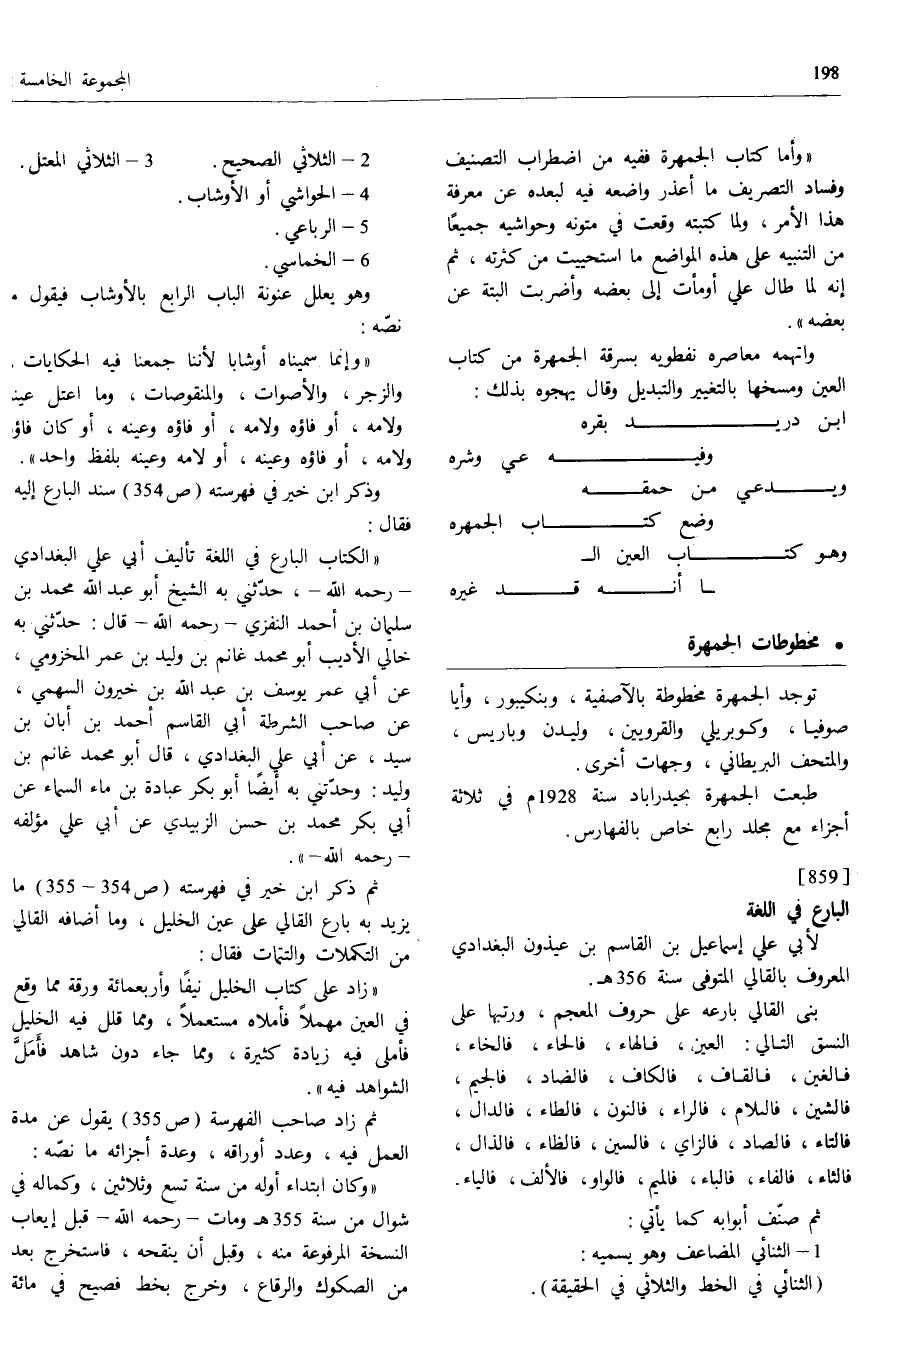 198
المجموعة الخامسة :
«وأما كتاب الجمهرة ففيه من اضطراب التصنيف
وفساد التصريف ما أعذر واضعه فيه لبعده عن معرفة
هذا الأمر ، ولما كتبته وقعت في متونه وحواشيه جميعًا
من التنبيه على هذه المواضع ما استحييت من كثرته ، ثم
إنه لما طال علي أومأت إلى بعضه وأضربت البتة عن
بعضه» .
واتهمه معاصره نفطويه بسرقة الجمهرة من كتاب
العين ومسخها بالتغيير والتبديل وقال يهجوه بذلك :
ابن دريـــــــــــد بقره
وفيـــــــــــه عي وشره
ويـــــــدعي من حمقـــــــه
وضع كتـــــــــاب الجمهره
وهو كتـــــــــاب العين الـ
ـا أنـــــــه قـــــــد غيره
• مخطوطات الجمهرة
توجد الجمهرة مخطوطة بالآصفية ، وبنكيبور ، وأيا
صوفيا ، وكوبريلي والقرويين ، وليدن وباريس ،
والمتحف البريطاني ، وجهات أخرى .
طبعت الجمهرة بحيدراباد سنة 1928م في ثلاثة
أجزاء مع مجلد رابع خاص بالفهارس .
[859]
البارع في اللغة
لأبي علي إسماعيل بن القاسم بن عيذون البغدادي
المعروف بالقالي المتوفى سنة 356هـ .
بنى القالي بارعه على حروف المعجم ، ورتبها على
النسق التالي : العين ، فالهاء ، فالحاء ، فالخاء ،
فالغين ، فالقاف ، فالكاف ، فالضاد ، فالجيم ،
فالشين ، فاللام ، فالراء ، فالنون ، فالطاء ، فالدال ،
فالتاء ، فالصاد ، فالزاي ، فالسين ، فالظاء ، فالذال ،
فالثاء ، فالفاء ، فالباء ، فالميم ، فالواو ، فالألف ، فالياء .
ثم صنّف أبوابه كما يأتي :
1 – الثنائي المضاعف وهو يسميه :
(الثنائي في الخط والثلاثي في الحقيقة) .
2 – الثلاثي الصحيح . 3 – الثلاثي المعتل .
4 – الحواشي أو الأوشاب .
5 – الرباعي .
6 – الخماسي .
وهو يعلل عنونة الباب الرابع بالأوشاب فيقول
نصّه :
«وإنما سميناه أوشابا لأننا جمعنا فيه الحكايات ،
والزجر ، والأصوات ، والمنقوصات ، وما اعتل عينـ
ولامه ، أو فاؤه ولامه ، أو فاؤه وعينه ، أو كان فاؤ
ولامه ، أو فاؤه وعينه ، أو لامه وعينه بلفظ واحد» .
وذكر ابن خير في فهرسته (ص354) سند البارع إليه
فقال :
«الكتاب البارع في اللغة تأليف أبي علي البغدادي
– رحمه الله – ، حدّثني به الشيخ أبو عبد الله محمد بن
سليمان بن أحمد النفزي – رحمه الله – قال : حدّثني به
خالي الأديب أبو محمد غانم بن وليد بن عمر المخزومي ،
عن أبي عمر يوسف بن عبد الله بن خيرون السهمي ،
عن صاحب الشرطة أبي القاسم أحمد بن أبان بن
سيد ، عن أبي علي البغدادي ، قال أبو محمد غانم بن
وليد : وحدّثني به أيضًا أبو بكر عبادة بن ماء السماء عن
أبي بكر محمد بن حسن الزبيدي عن أبي علي مؤلفه
– رحمه الله –» .
ثم ذكر ابن خير في فهرسته (ص354 – 355) ما
يزيد به بارع القالي على عين الخليل ، وما أضافه القالي
من التكملات والتتمات فقال :
«زاد على كتاب الخليل نيفًا وأربعمائة ورقة مما وقع
في العين مهملاً فأملاه مستعملاً ، ومما قلل فيه الخليل
فأملى فيه زيادة كثيرة ، ومما جاء دون شاهد فأَمَلَّ
الشواهد فيه» .
ثم زاد صاحب الفهرسة (ص355) يقول عن مدة
العمل فيه ، وعدد أوراقه ، وعدة أجزائه ما نصّه :
«وكان ابتداء أوله من سنة تسع وثلاثين ، وكماله في
شوال من سنة 355هـ ومات – رحمه الله – قبل إيعاب
النسخة المرفوعة منه ، وقبل أن ينقحه ، فاستخرج بعد
من الصكوك والرقاع ، وخرج بخط فصيح في مائة